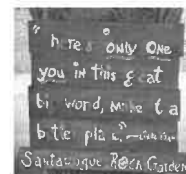 "here's only one
you in this g eat
bi word, m ke t a
b tte pla e."
Rock Garden